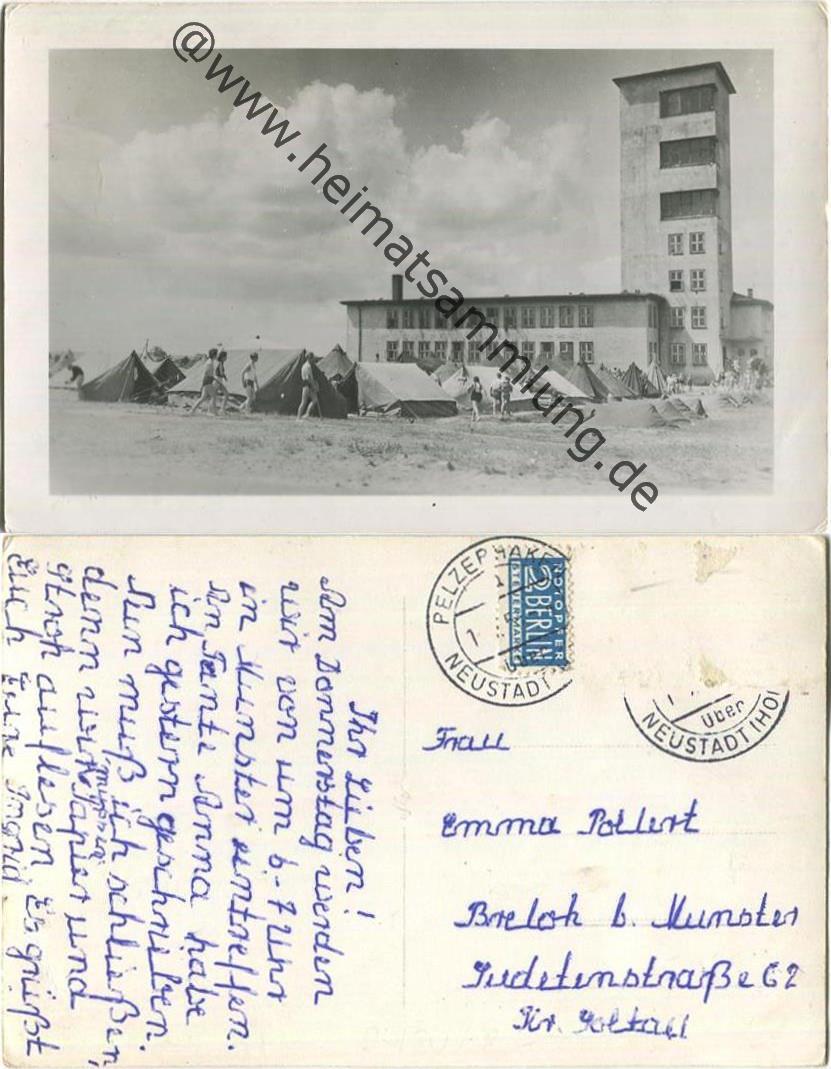 @www.heimatsammlung.de
PELZERHAKEN
NEUSTADT
NOTOPFER
2 BERLIN
STEUERMARKE
über
NEUSTADT (HO
Ihr Lieben!
Am Donnerstag werden
wir von um 6-7 Uhr
in Munster eintreffen.
An Tante Anna habe
ich gestern geschrieben.
Nun muß ich schließen,
denn wir müssen Papier und
Stroh auflesen Es grüßt
Euch Eure Ingrid
Frau
Emma Pollert
Breloh b. Munster
Sudetenstraße 62
Kr. Soltau